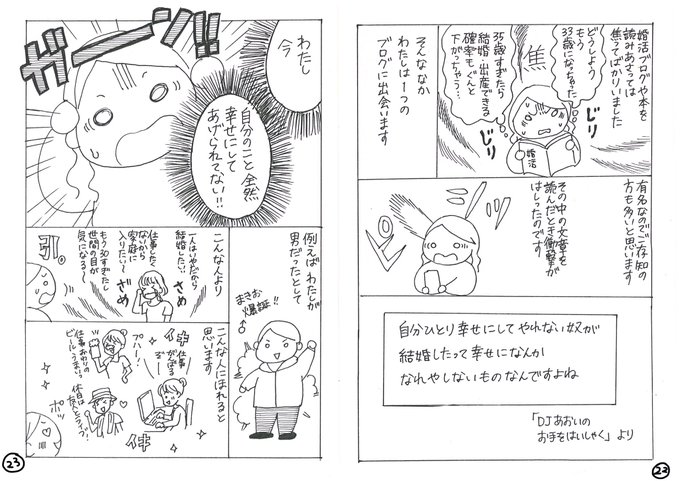 婚活ブログや本を
読みあさっては
焦ってばかりいました
どうしよう
もう
33歳になっちゃった
焦
35歳すぎたら
結婚・出産できる
確率もぐんと
下がっちゃう…
じり
じり
婚活
そんななか
わたしは1つの
ブログに出会います
有名なのでご存知の
方も多いと思います
その中の文章を
読んだとき衝撃が
はしったのです
自分ひとり幸せにしてやれない奴が
結婚したって幸せになんか
なれやしないものなんですよね
「DJあおいの
お手をはいしゃく」より
22
ガーーン!!
わたし
今
自分のこと全然
幸せにして
あげられてない!!
例えばわたしが
男だったとして
まきお
爆誕!!
こんな人より
仕事したく
ないから
家庭に
入りたい〜
一人はいやだから
結婚したい!!
もう30すぎたし
世間の目が
気になる〜
ざめ
ざめ
引。
こんな人にほれると
思います
イキ
イキ
仕事
がんばる
ぞー
プハー!
仕事おわりの
ビールうまい!!
休日は
友人とライブ!
ポッ
23